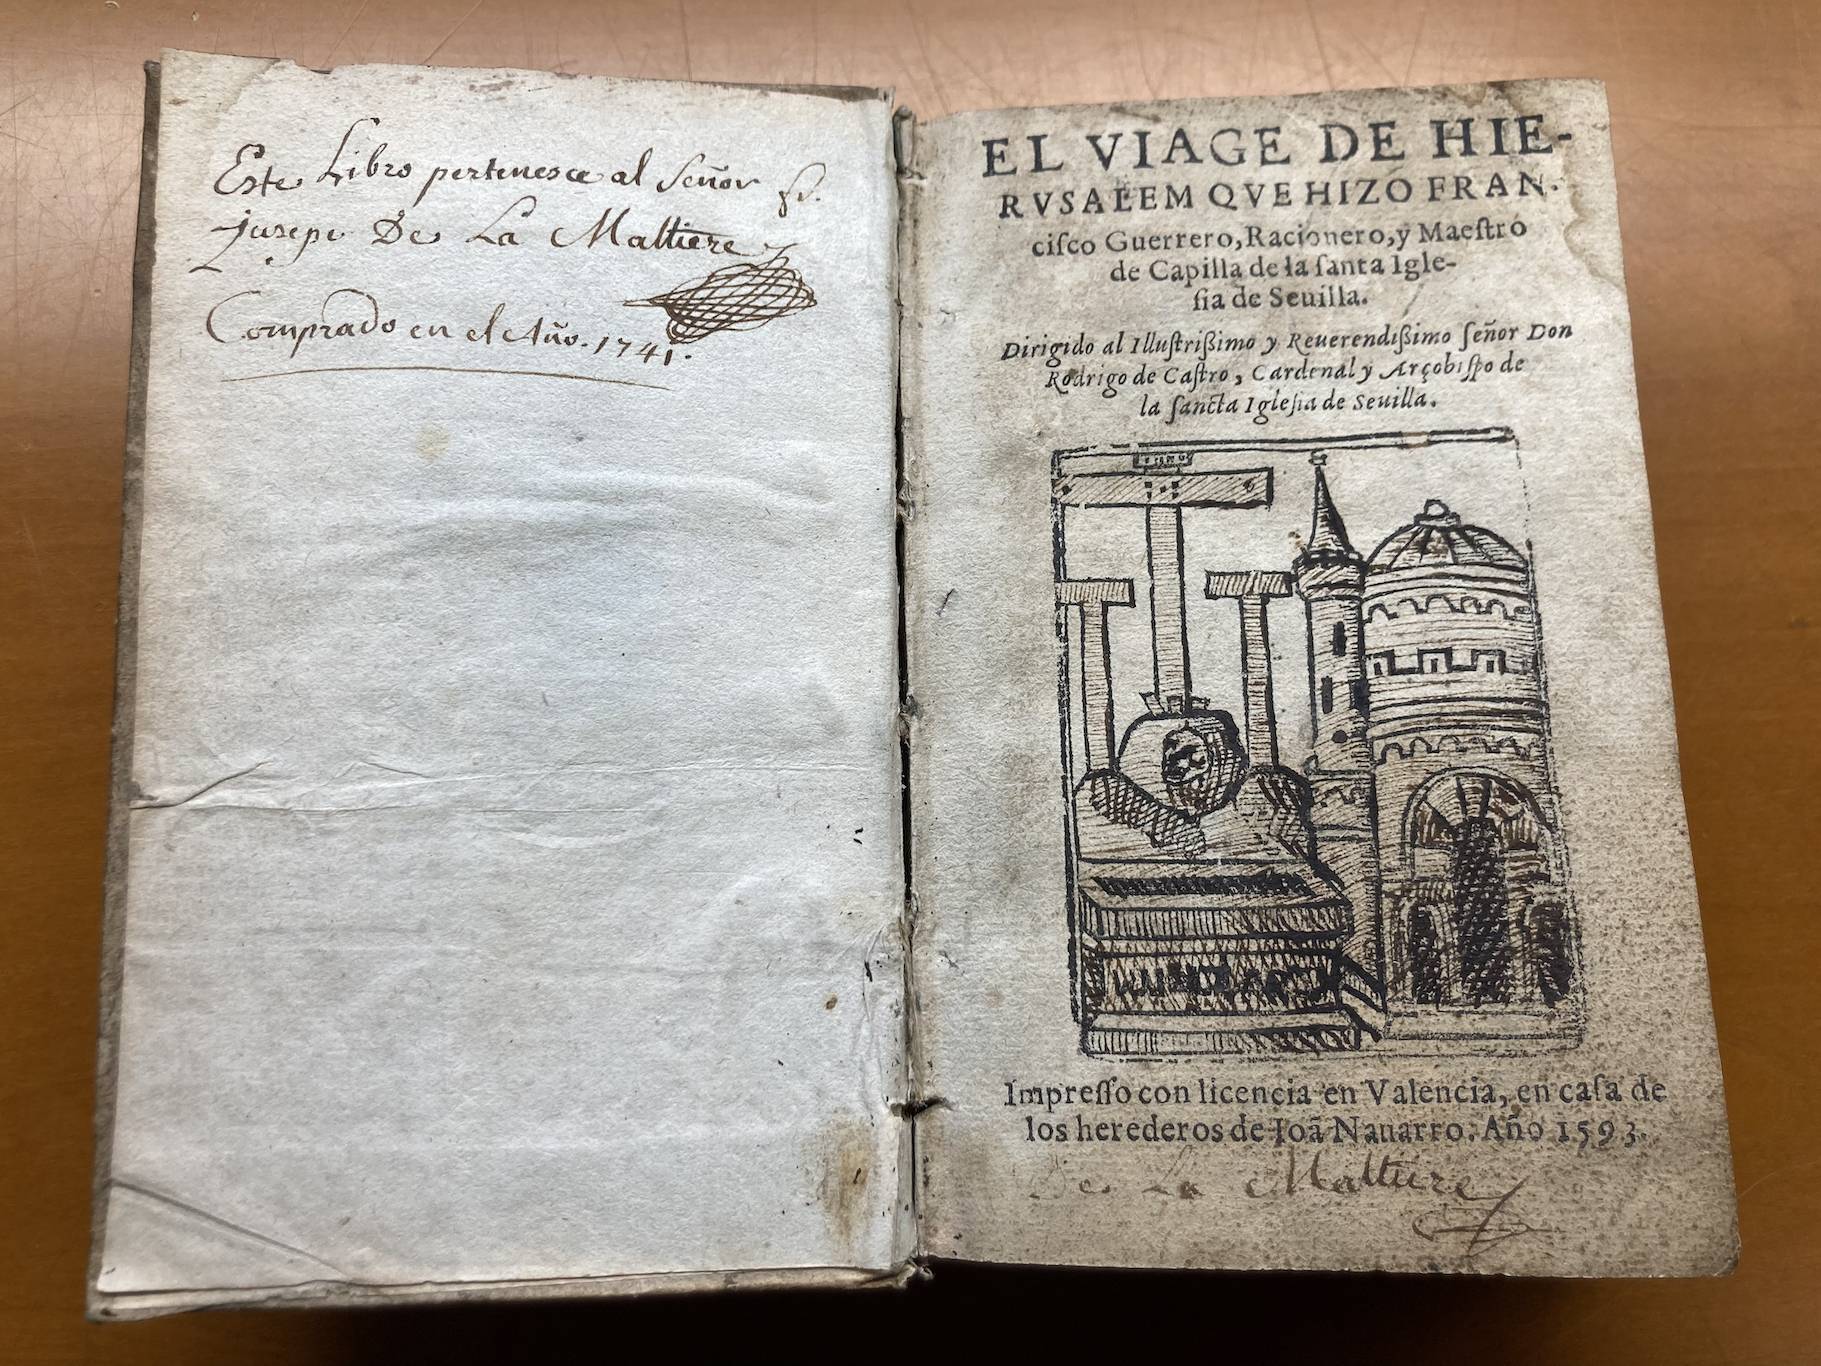 Este Libro pertenesce al Señor
Jusepe De La Maltiere
Comprado en el Año. 1741.
EL VIAGE DE HIE-
RVSALEM QVE HIZO FRAN.
ciſco Guerrero, Racionero, y Maeſtro
de Capilla de la ſanta Igle-
ſia de Seuilla.
Dirigido al Illuſtrißimo y Reuerendißimo ſeñor Don
Rodrigo de Caſtro, Cardenal y Arçobiſpo de
la ſancta Igleſia de Seuilla.
Impreſſo con licencia en Valencia, en caſa de
los herederos de Ioã Nauarro. Año 1593.
De La Maltiere